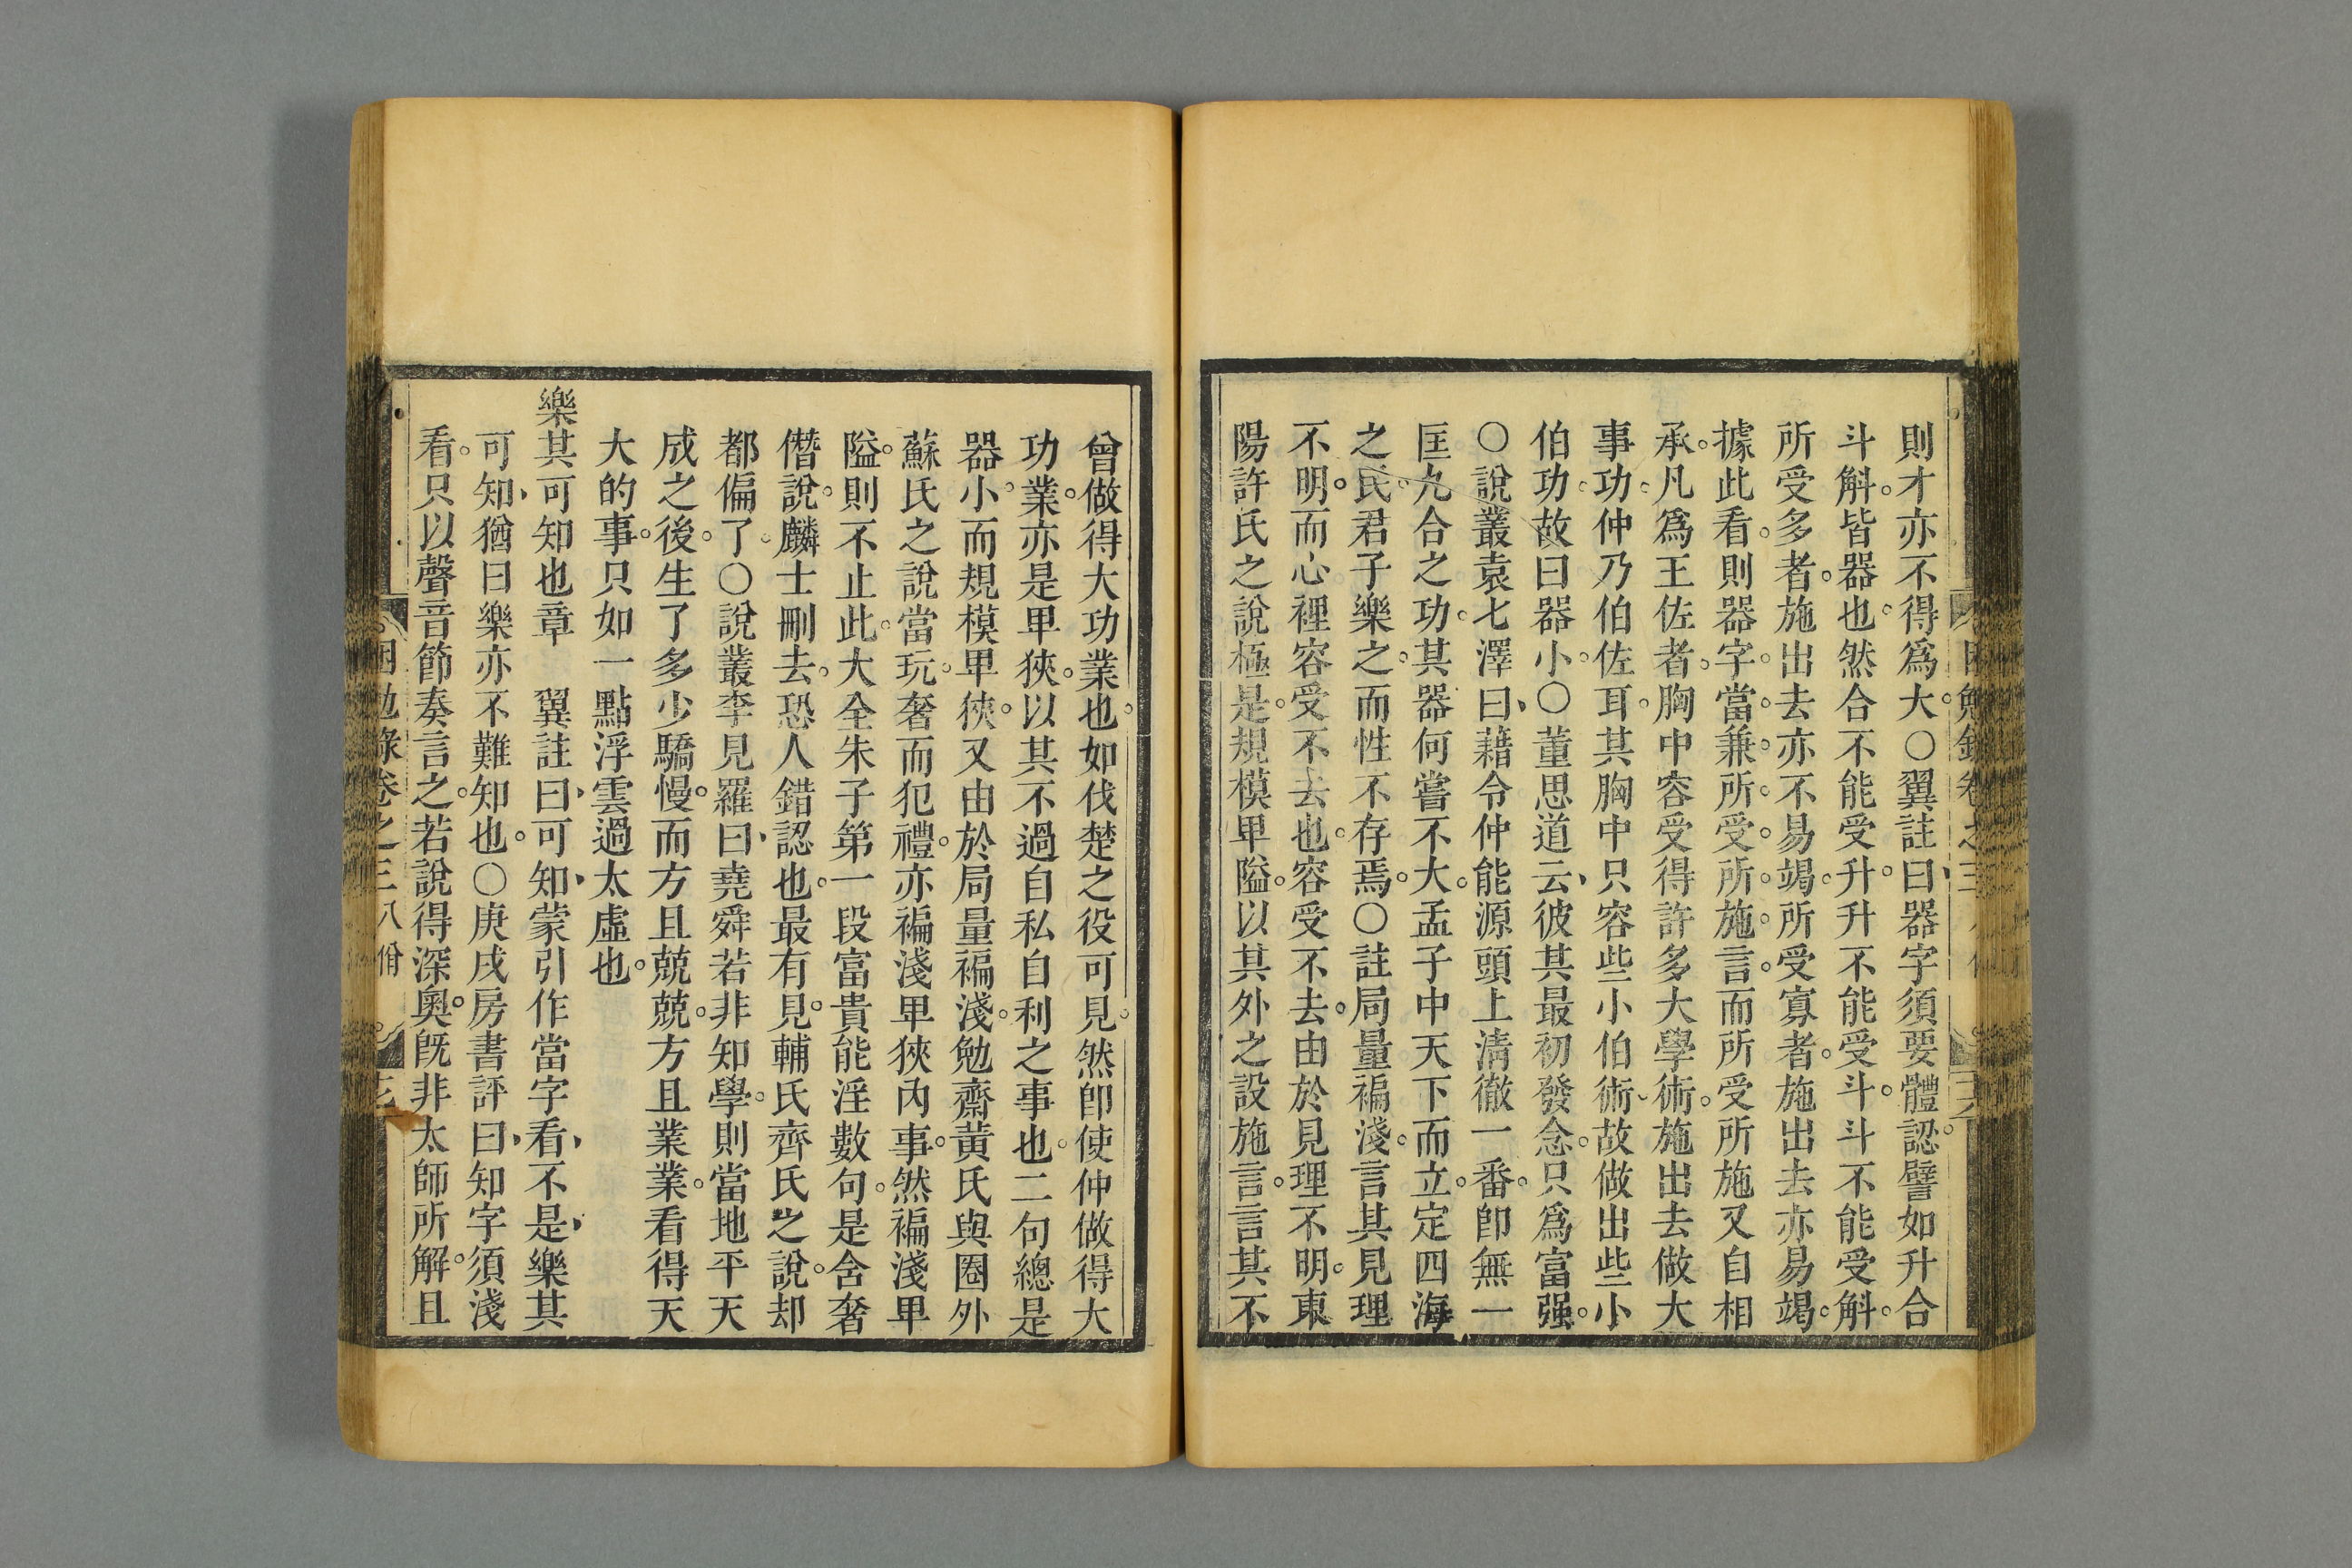 則才亦不得爲大○翼註曰器字須要體認譬如升合
斗斛皆器也然合不能受升升不能受斗斗不能受斛
所受多者施出去亦不易竭所受寡者施出去亦易竭
據此看則器字當兼所受所施言而所受所施又自相
承凡爲王佐者胸中容受得許多大學術施出去做大
事功仲乃伯佐耳其胸中只容些小伯術故做出些小
伯功故曰器小○董思道云彼其最初發念只爲富强
○說叢袁七澤曰藉令仲能源頭上淸徹一番卽無一
匡九合之功其器何嘗不大孟子中天下而立定四海
之民君子樂之而性不存焉○註局量褊淺言其見理
不明而心裡容受不去也容受不去由於見理不明東
陽許氏之說極是規模卑隘以其外之設施言言其不
曾做得大功業也如伐楚之役可見然卽使仲做得大
功業亦是卑狹以其不過自私自利之事也二句總是
器小而規模卑狹又由於局量褊淺勉齋黄氏與圈外
蘇氏之說當玩奢而犯禮亦褊淺卑狹內事然褊淺卑
隘則不止此大全朱子第一段富貴能淫數句是舍奢
僭說麟士刪去恐人錯認也最有見輔氏齊氏之說却
都偏了○說叢李見羅曰堯舜若非知學則當地平天
成之後生了多少驕慢而方且兢兢方且業業看得天
大的事只如一點浮雲過太虛也
樂其可知也章　翼註曰可知蒙引作當字看不是樂其
可知猶曰樂亦不難知也○庚戌房書評曰知字須淺
看只以聲音節奏言之若說得深奧旣非太師所解且
困勉錄卷之三八佾